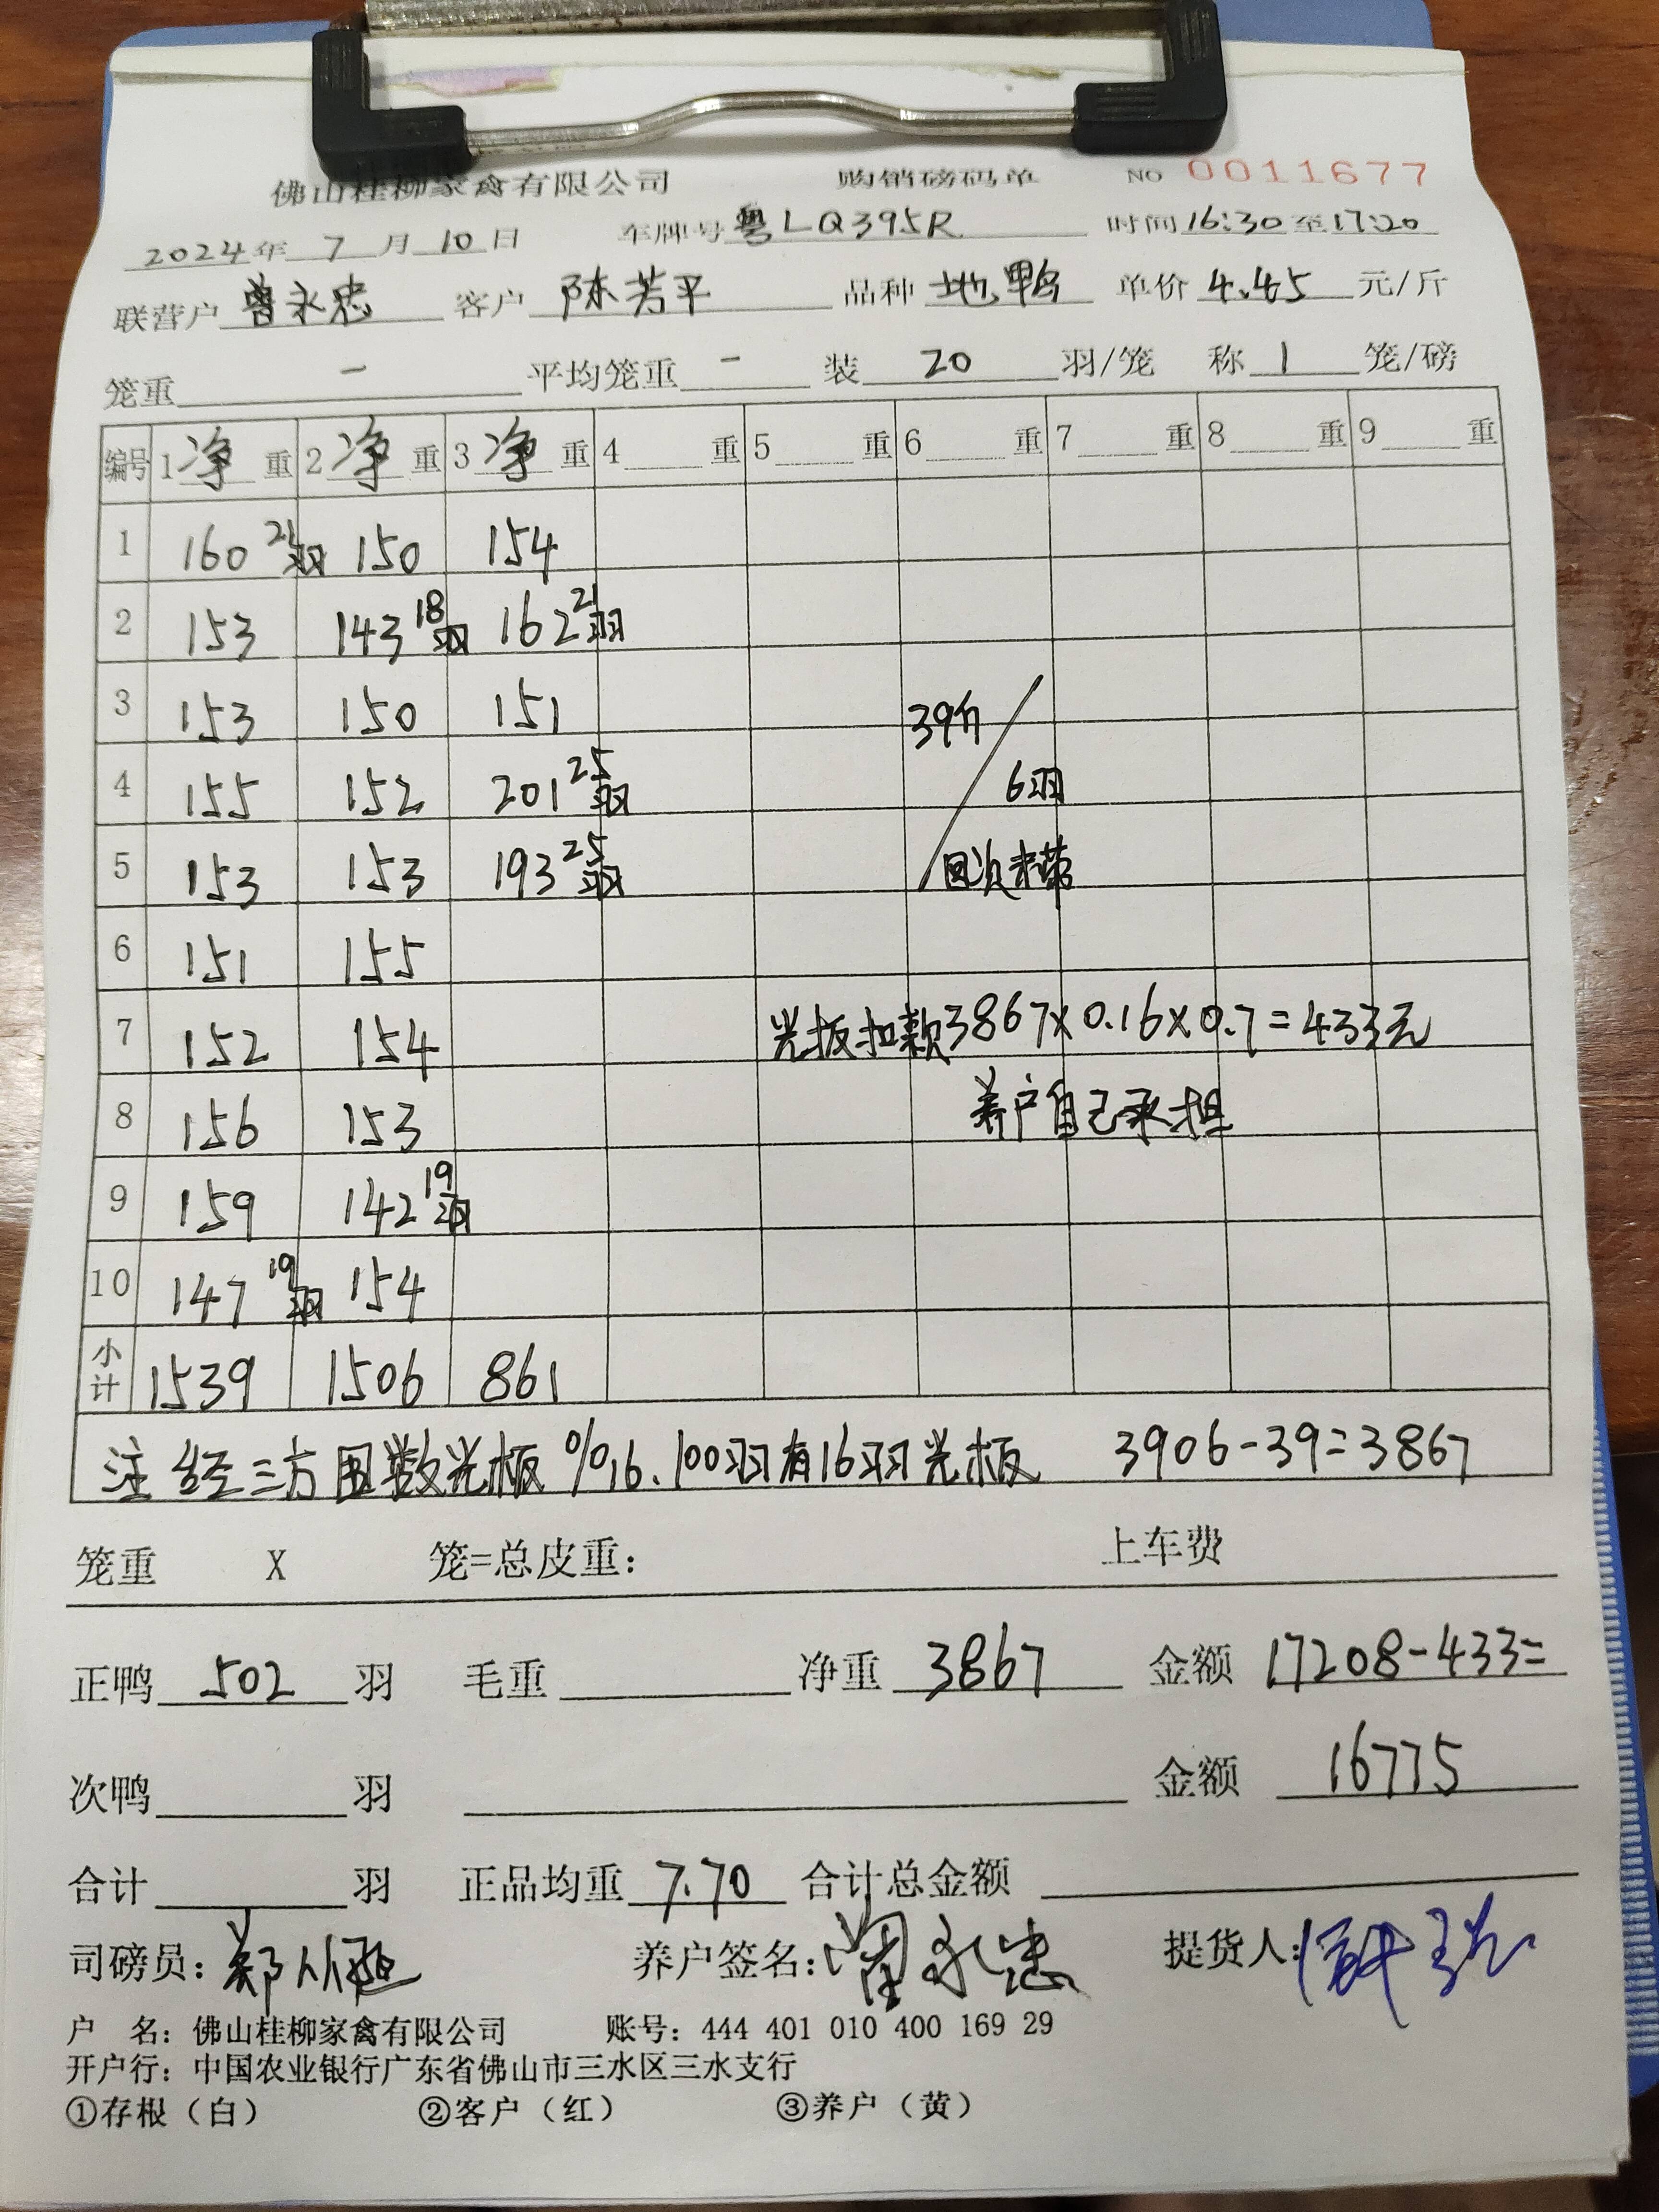 佛山桂柳家禽有限公司 购销磅码单 NO 0011677
2024年 7 月 10 日 车牌号 粤LQ395R 时间 16:30 至 17:20
联营户 曾永忠 客户 陈芳平 品种 地鸭 单价 4.45 元/斤
笼重 - 平均笼重 - 装 20 羽/笼 称 1 笼/磅
编号 1 净 重 2 净 重 3 净 重 4 重 5 重 6 重 7 重 8 重 9 重
1 160 21羽 150 154
2 153 143 18羽 162 21羽
3 153 150 151 39斤
4 155 152 201 25羽 6羽
5 153 153 193 25羽
6 151 155
7 152 154 光板扣款3867×0.16×0.7=433元
8 156 153 养户自己承担
9 159 142 19羽
10 147 19羽 154
小计 1539 1506 861
注 经三方 数光板%16.100羽有16羽光板 3906-39=3867
笼重 X 笼=总皮重: 上车费
正鸭 502 羽 毛重 净重 3867 金额 17208-433=
次鸭 羽 金额 16775
合计 羽 正品均重 7.70 合计总金额
司磅员: 养户签名: 曾永忠 提货人:
户 名: 佛山桂柳家禽有限公司 账号: 444 401 010 400 169 29
开户行: 中国农业银行广东省佛山市三水区三水支行
①存根（白） ②客户（红） ③养户（黄）